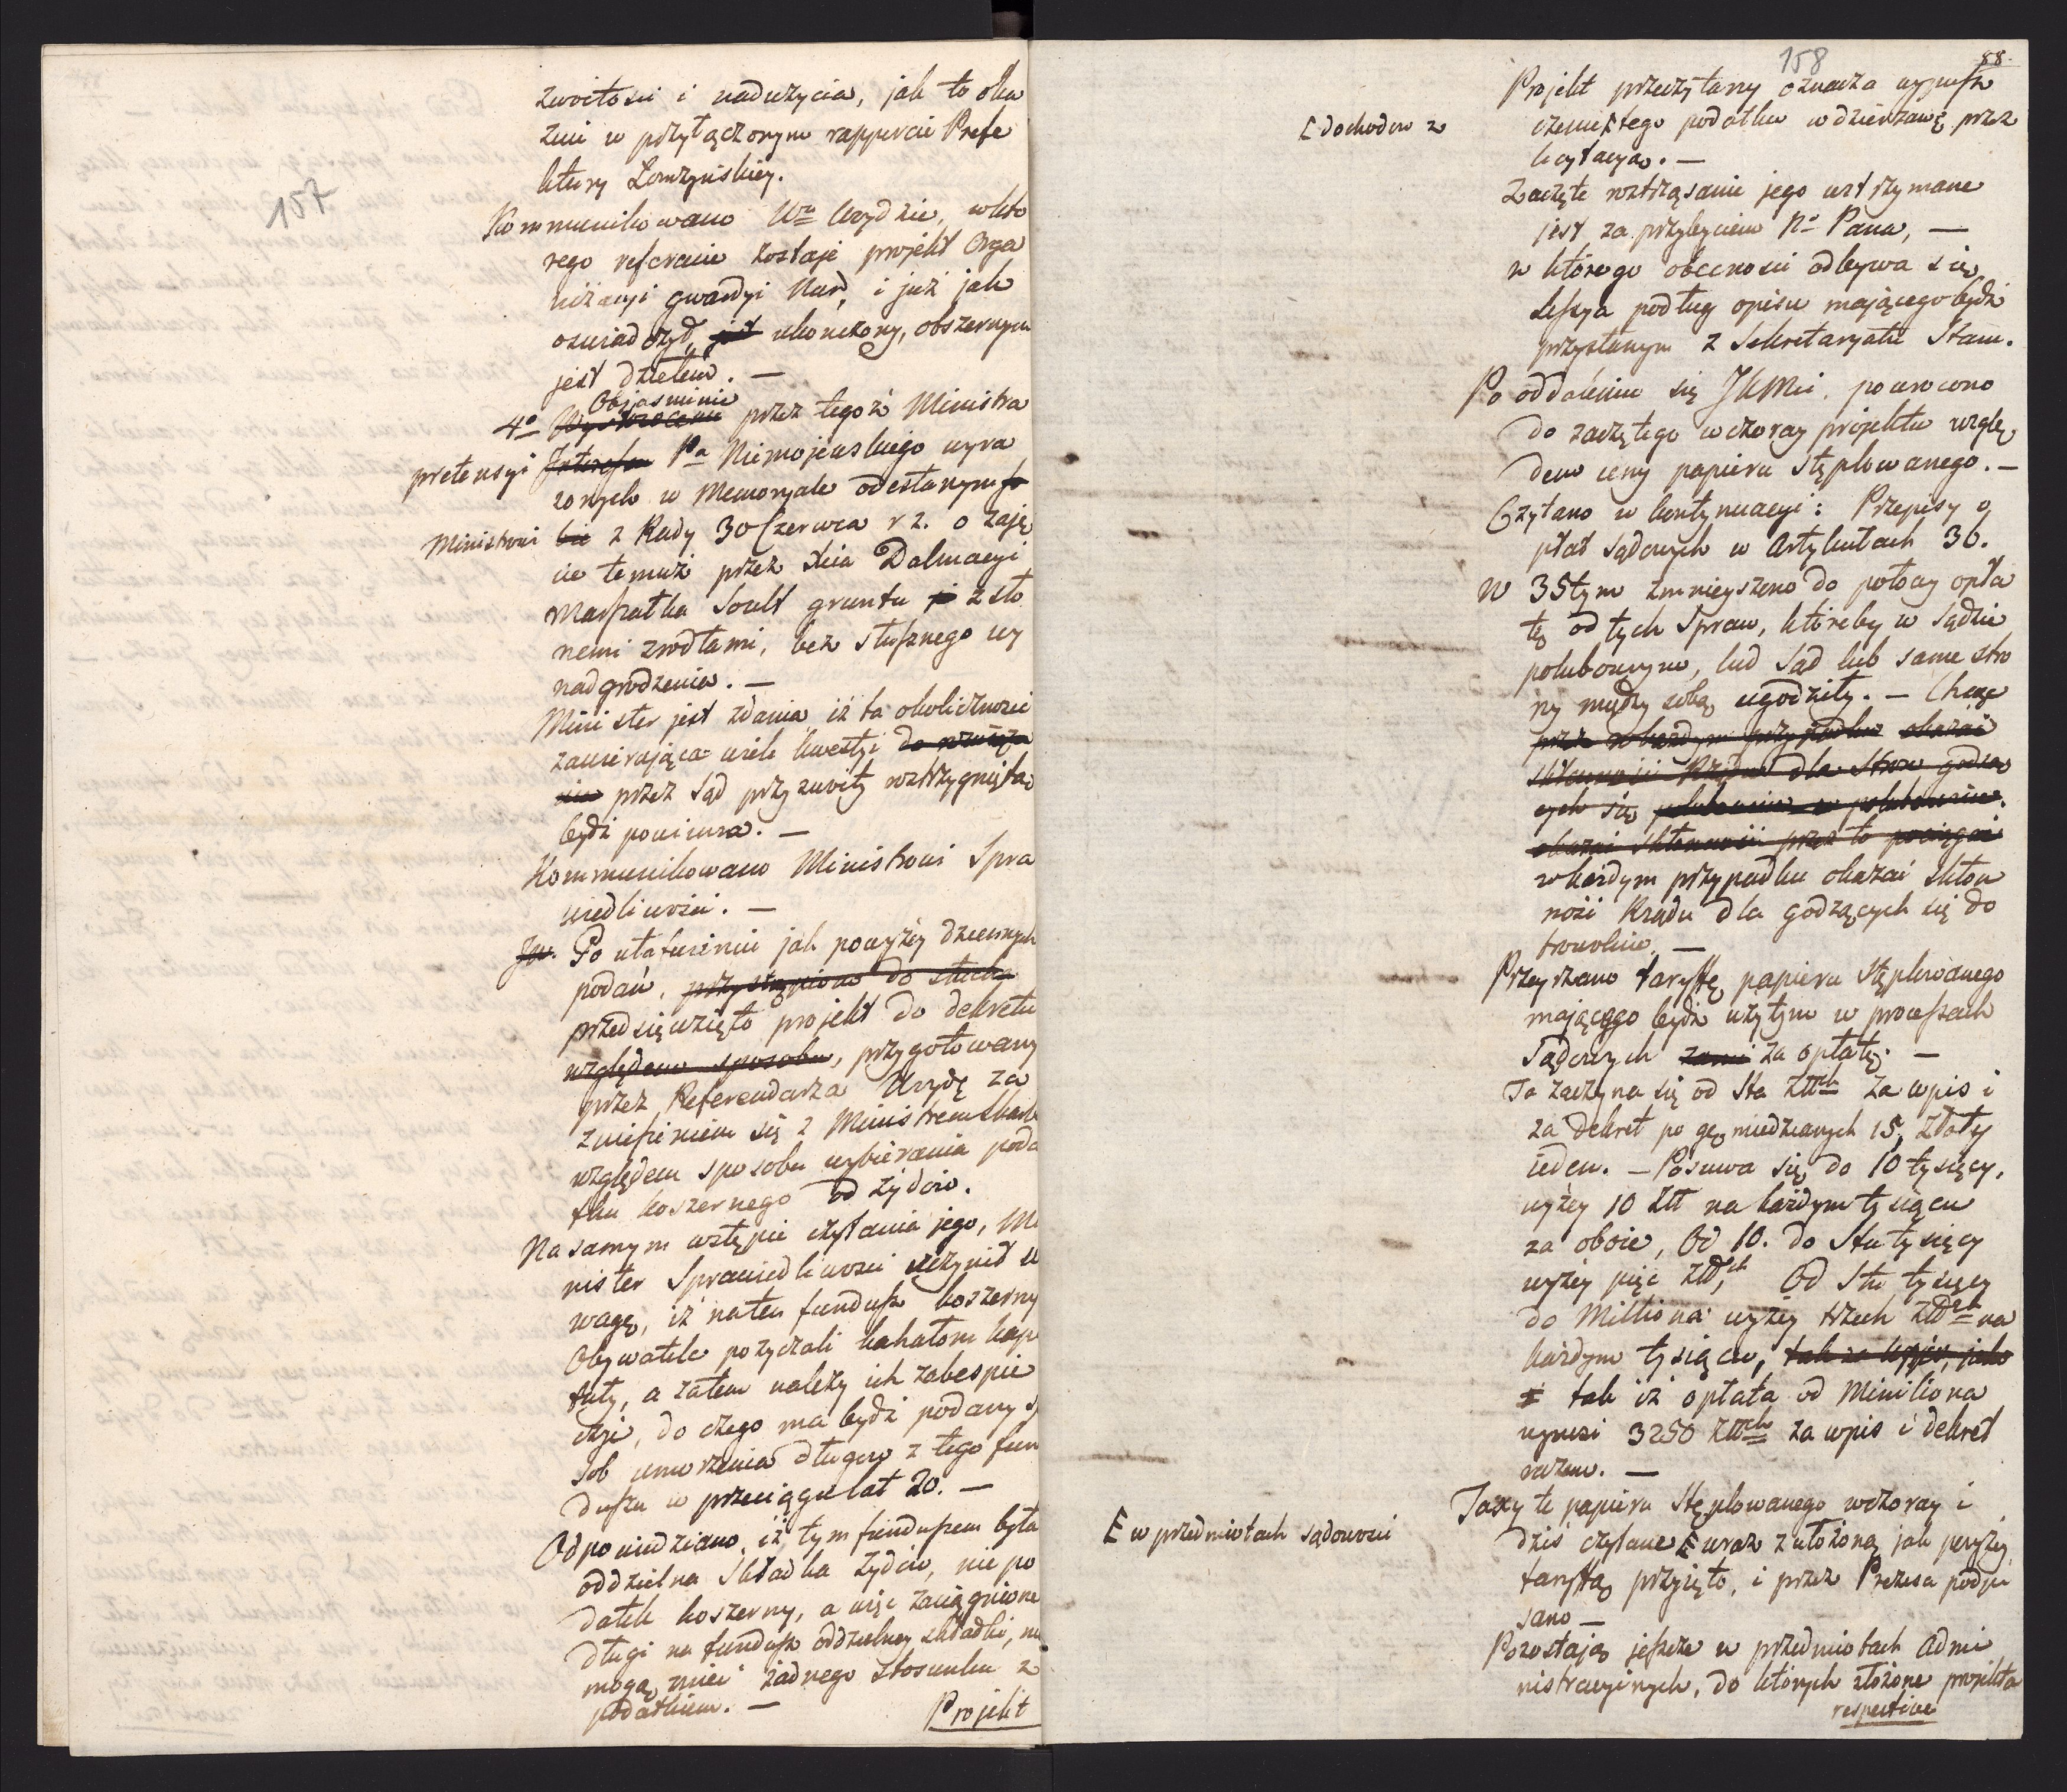 157
zwoitości i nadużycia, jak to oka
zuie w przyłączonym rapporcie Prefe
ktury Łomżyńskiey.
Kommunikowano Wu Uzydzie, w któ
rego referacie zostaje projekt Orga
nizacyi gwardyi Nard, i już jak
oświadczył, jest ukończony, obszernym
jest dziełem. —
Objaśnienie
4o przez tegoż Ministra
pretensyi Interessu Pa Niemojewskiego wyra
żonych w Memoryale odesłanym so
Ministrowi bie z Rady 30 Czerwca r z. o zaję
cie temuż przez Xcia Dalmacyi
Marszałka Soult gruntu z sło
nemi zrodłami, bez słusznego wy
nadgrodzenia. —
Minister jest zdania iż ta okoliczność
zawierająca wiele kwestyi do
przez Sąd przyzwoity rozstrzygniętą
bydź powinna. —
Kommunikowano Ministrowi Spra
wiedliwości. —
Po ułatwieniu jak powyżey dziennych
podań, przystąpiono do słucha
przedsięwzięto projekt do dekretu
względem sposobu, przygotowany
przez Referendarza Uzydę za
zniesieniem się z Ministrem Skarb
względem sposobu wybierania poda
tku koszernego od żydów.
Na samym wstępie czytania jego, Mi
nister Sprawiedliwości uczynił u
wagę, iż na ten fundusz koszerny
Obywatele pożyczali kahałom kapi
tały, a zatem należy ich zabespie
czyć, do czego ma bydź podany sp
sob umorzenia długów z tego fun
duszu w przeciągu lat 20. —
Odpowiedziano, iż tym funduszem była
oddzielna składka żydów, nie po
datek koszerny, a więc zaciągnione
długi na fundusz oddzielney składki, nie
mogą mieć żadnego stosunku z
podatkiem. —
Projekt
158
88.
Projekt przeczytany oznacza wypusz
[dochodów z czenie [tego podatku w dzierżawę przez
licytacyą. —
Zaczęte roztrząsanie jego wstrzymane
jest za przybyciem No Pana, —
w którego obecności odbywa się
Sessya podług opisu mającego bydź
przysłanym z Sekretaryatu Stanu.
Po oddaleniu się JKMci, powrócono
do zaczętego wczoray projektu wzglę
dem ceny papieru stęplowanego. —
Czytano w kontynuacyi: Przepisy o
płat sądowych w Artykułach 36.
W 35tym zmnieyszono do połowy opła
tę od tych spraw, któreby w Sądzie
polubownym, lud Sąd lub same stro
ny między sobą ugodziły. — Chcąc
przez w każdym przypadku okazać
skłonność Rządu dla stron godzą
cych się
okazać skłonność przez to
w każdym przypadku okazać skłon
ność Rządu dla godzących się do
browolnie. —
Przeyrzano taryffę papieru stęplowanego
mającego bydź użytym w processach
Sądowych za opłatę. —
Ta zaczyna się od Sta Złłch za wpis i
za dekret po gę miedzianych 15, złoty
ieden. — Posuwa się do 10 tysięcy,
wyżey 10 Złł na każdym tysiącu
za oboie, Od 10. do Stu tysięcy
wyżey pięć złłch, Od Stu tysięcy
do Milliona wyżey trzech złłch na
każdym tysiącu, tak za wpis, jako
i tak iż opłata od Miniliona
wynosi 3250 złłch za wpis i dekret
razem. —
Taxy te papieru stęplowanego wczoray i
[w przedmiotach sądowości dziś czytane [wraz z ułożoną jak powyżey
taryffą przyięto, i przez Prezesa podpi
sano —
Pozostają jeszcze w przedmiotach Admi
nistracyinych, do których złożone projekta
respective